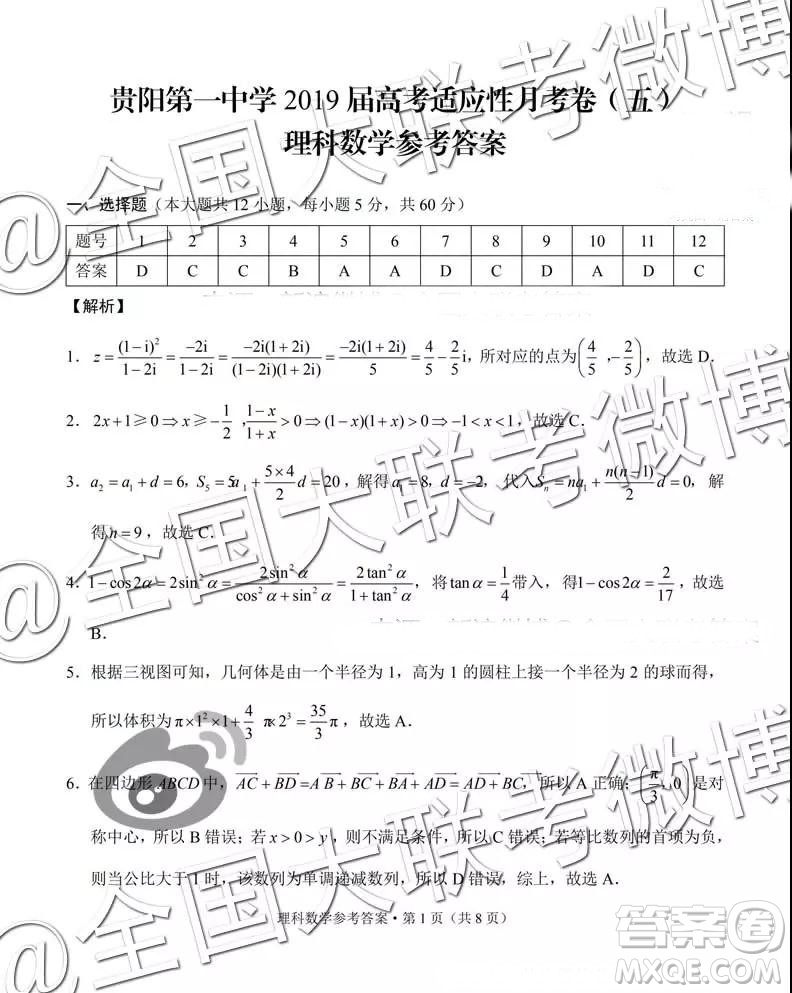 贵阳第一中学 2019 届高考适应性月考卷（五）
理科数学参考答案
一、选择题（本大题共 12 小题，每小题 5 分，共 60 分）
题号 1 2 3 4 5 6 7 8 9 10 11 12
答案 D C C B A A D C D A D C
【解析】
1．z=(1-i)²/(1-2i)=-2i/(1-2i)=-2i(1+2i)/((1-2i)(1+2i))=-2i(1+2i)/5=4/5-2/5 i，所对应的点为(4/5，-2/5)，故选 D．
2．2x+1≥0⇒x≥-1/2，(1-x)/(1+x)>0⇒(1-x)(1+x)>0⇒-1<x<1，故选 C．
3．a₂=a₁+d=6，S₅=5a₁+(5×4)/2 d=20，解得a₁=8，d=-2，代入Sₙ=na₁+n(n-1)/2 d=0，解
得n=9，故选 C．
4．1-cos2α=2sin²α=2sin²α/(cos²α+sin²α)=2tan²α/(1+tan²α)，将tanα=1/4带入，得1-cos2α=2/17，故选
B．
5．根据三视图可知，几何体是由一个半径为 1，高为 1 的圆柱上接一个半径为 2 的球而得，
所以体积为π×1²×1+4/3 π×2³=35/3 π，故选 A．
6．在四边形 ABCD 中，AC+BD=AB+BC+BA+AD=AD+BC，所以 A 正确；(π/3，0)是对
称中心，所以 B 错误；若 x>0>y，则不满足条件，所以 C 错误；若等比数列的首项为负，
则当公比大于 1 时，该数列为单调递减数列，所以 D 错误，综上，故选 A．
理科数学参考答案·第 1 页（共 8 页）
@全国大联考微博
@全国大联考微博
@全国大联考微博
答案卷
MXQE.COM